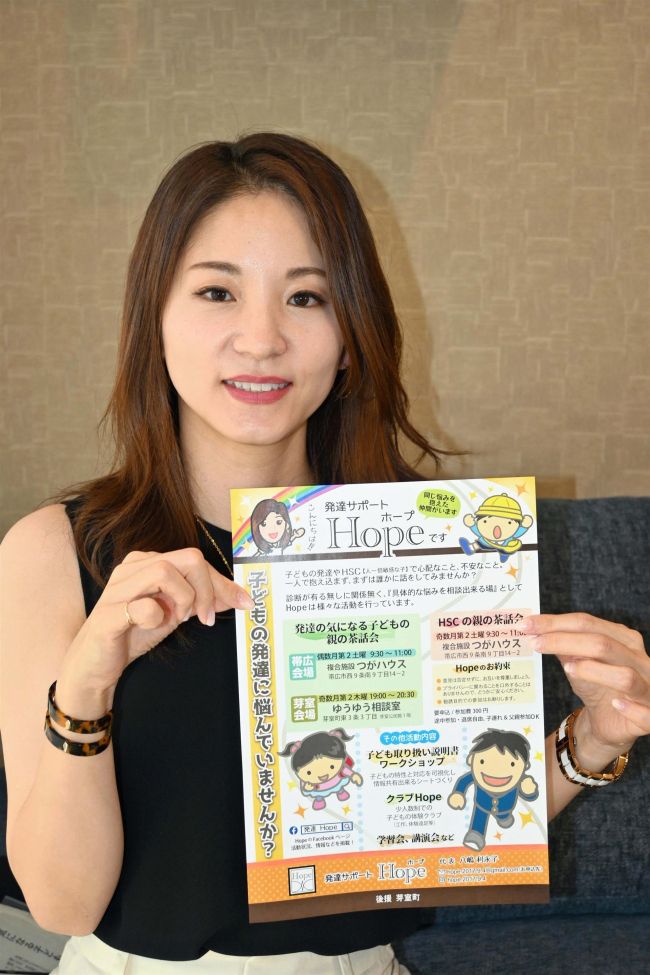 こんにちは!!
発達サポート
ホープ
Hopeです
同じ悩みを
抱えた
仲間がいます
子どもの発達に悩んでいませんか？
子どもの発達やHSC【人一倍敏感な子】で心配なこと、不安なこと。
一人で抱え込まず、まずは誰かに話をしてみませんか？
診断が有る無しに関係無く、『具体的な悩みを相談出来る場』として
Hopeは様々な活動を行っています。
発達の気になる子どもの
親の茶話会
帯広
会場
偶数月第2土曜 9:30～11:00
複合施設 つがハウス
帯広市西9条南9丁目14-2
芽室
会場
奇数月第2木曜 19:00～20:30
ゆうゆう相談室
芽室町東3条3丁目
HSCの親の茶話会
奇数月第2土曜 9:30～11:00
複合施設 つがハウス
帯広市西9条南9丁目14-2
Hopeのお約束
要申込/参加費 300円
途中参加・退席自由、子連れ&父親参加OK
その他活動内容
子ども取り扱い説明書
ワークショップ
子どもの特性と対応を可視化し
情報共有出来るシートづくり
クラブHope
少人数制での
子どもの体験クラブ
学習会、講演会など
発達 Hope
HopeのFacebookページ
活動状況、情報などを掲載!
Hope
発達サポート
ホープ
Hope
代表 八嶋 利永子
後援 芽室町